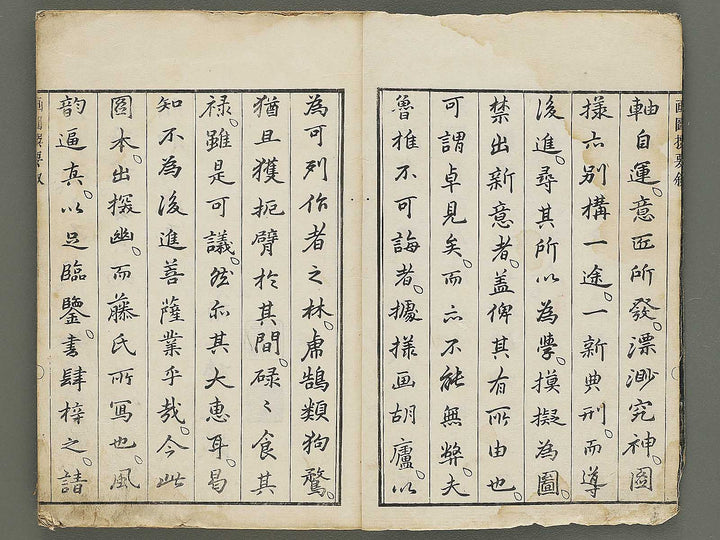 軸自運。意匠所發。漂渺究神。圖
採亦別構一途。一新典刑。而導
後進。尋其所以為學。摸擬為圖。
禁出新意者。蓋俾其有所由也。
可謂卓見矣。而亦不能無弊。夫
魯推不可誨者。據樣画胡廬。以
為可列作者之林。虎鵠類狗鶩。
猶且獲扼臂於其間。碌〻食其
祿。雖是可議。然亦其大惠耳。曷
知不為後進善薩業乎哉。今此
圖本。出探幽。而藤氏所寫也。風
韵逼真。以足臨鑒。書肆梓之。請